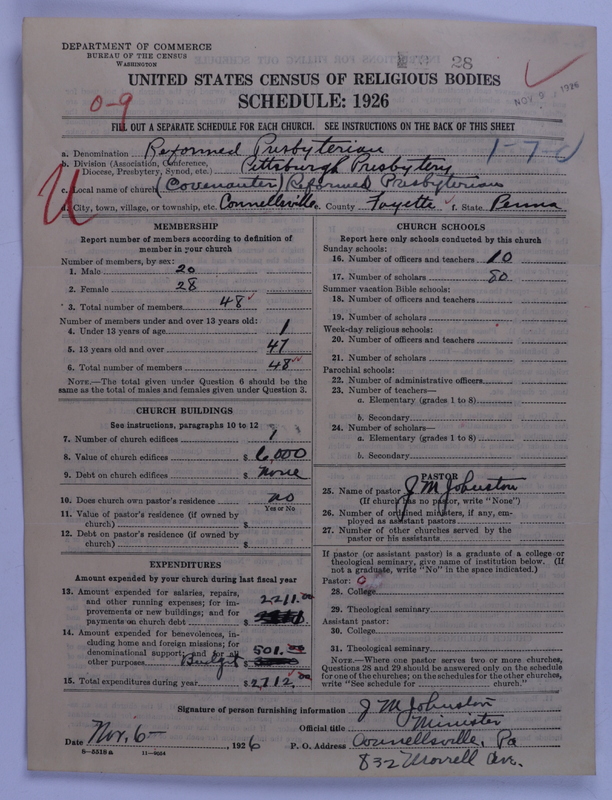 DEPARTMENT OF COMMERCE
BUREAU OF THE CENSUS
WASHINGTON
28
NOV 9 1926
UNITED STATES CENSUS OF RELIGIOUS BODIES
SCHEDULE: 1926
0-9
FILL OUT A SEPARATE SCHEDULE FOR EACH CHURCH. SEE INSTRUCTIONS ON THE BACK OF THIS SHEET
1-7-0
a. Denomination Reformed Presbyterian
b. Division (Association, Conference, Diocese, Presbytery, Synod, etc.) Pittsburgh Presbytery
c. Local name of church (Covenanter) Reformed Presbyterian
d. City, town, village, or township, etc. Connellsville e. County Fayette f. State Penna
MEMBERSHIP
Report number of members according to definition of
member in your church
Number of members, by sex:
1. Male 20
2. Female 28
3. Total number of members 48
Number of members under and over 13 years old:
4. Under 13 years of age 1
5. 13 years old and over 47
6. Total number of members 48
NOTE.—The total given under Question 6 should be the
same as the total of males and females given under Question 3.
CHURCH BUILDINGS
See instructions, paragraphs 10 to 12
7. Number of church edifices 1
8. Value of church edifices $ 6,000
9. Debt on church edifices $ None
10. Does church own pastor's residence no
Yes or No
11. Value of pastor's residence (if owned by
church) $
12. Debt on pastor's residence (if owned by
church) $
EXPENDITURES
Amount expended by your church during last fiscal year
13. Amount expended for salaries, repairs,
and other running expenses; for im-
provements or new buildings; and for
payments on church debt $ 2211.00
14. Amount expended for benevolences, in-
cluding home and foreign missions; for
denominational support; and for all
other purposes Budget $ 501.00
15. Total expenditures during year $ 2712.00
CHURCH SCHOOLS
Report here only schools conducted by this church
Sunday schools:
16. Number of officers and teachers 10
17. Number of scholars 80
Summer vacation Bible schools:
18. Number of officers and teachers
19. Number of scholars
Week-day religious schools:
20. Number of officers and teachers
21. Number of scholars
Parochial schools:
22. Number of administrative officers
23. Number of teachers—
a. Elementary (grades 1 to 8)
b. Secondary
24. Number of scholars—
a. Elementary (grades 1 to 8)
b. Secondary
PASTOR
25. Name of pastor J M Johnston
(If church has no pastor, write "None")
26. Number of ordained ministers, if any, em-
ployed as assistant pastors
27. Number of other churches served by the
pastor or his assistants
If pastor (or assistant pastor) is a graduate of a college or
theological seminary, give name of institution below. (If
not a graduate, write "No" in the space indicated.)
Pastor: 0
28. College
29. Theological seminary
Assistant pastor:
30. College
31. Theological seminary
NOTE.—Where one pastor serves two or more churches,
Questions 28 and 29 should be answered only on the schedule
for one of the churches; on the schedules for the other churches,
write "See schedule for church."
Signature of person furnishing information J M Johnston
Official title Minister
Date Nov. 6— 1926 P. O. Address Connellsville, Pa
8—5518a 11—9564
832 Morrell Ave.